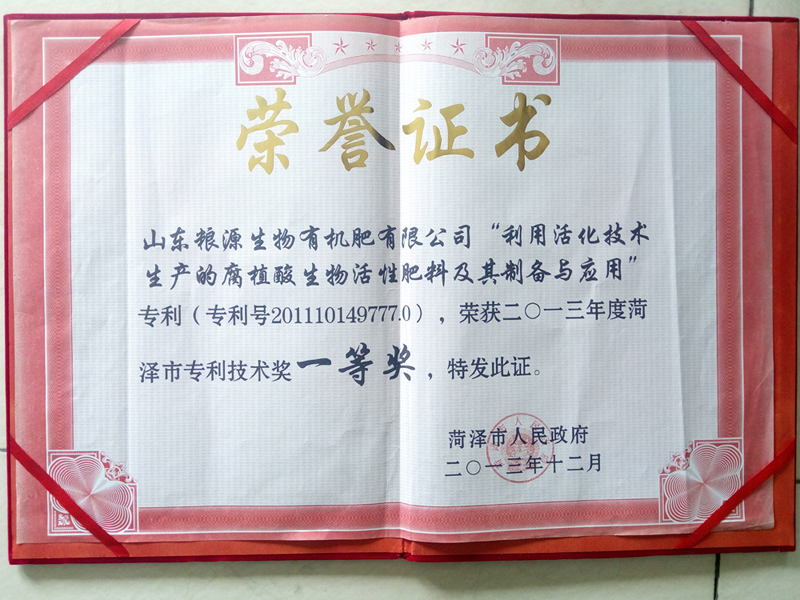 荣誉证书
山东粮源生物有机肥有限公司“利用活化技术
生产的腐植酸生物活性肥料及其制备与应用”
专利（专利号201110149777.0），荣获二〇一三年度菏
泽市专利技术奖一等奖，特发此证。
菏泽市人民政府
二〇一三年十二月